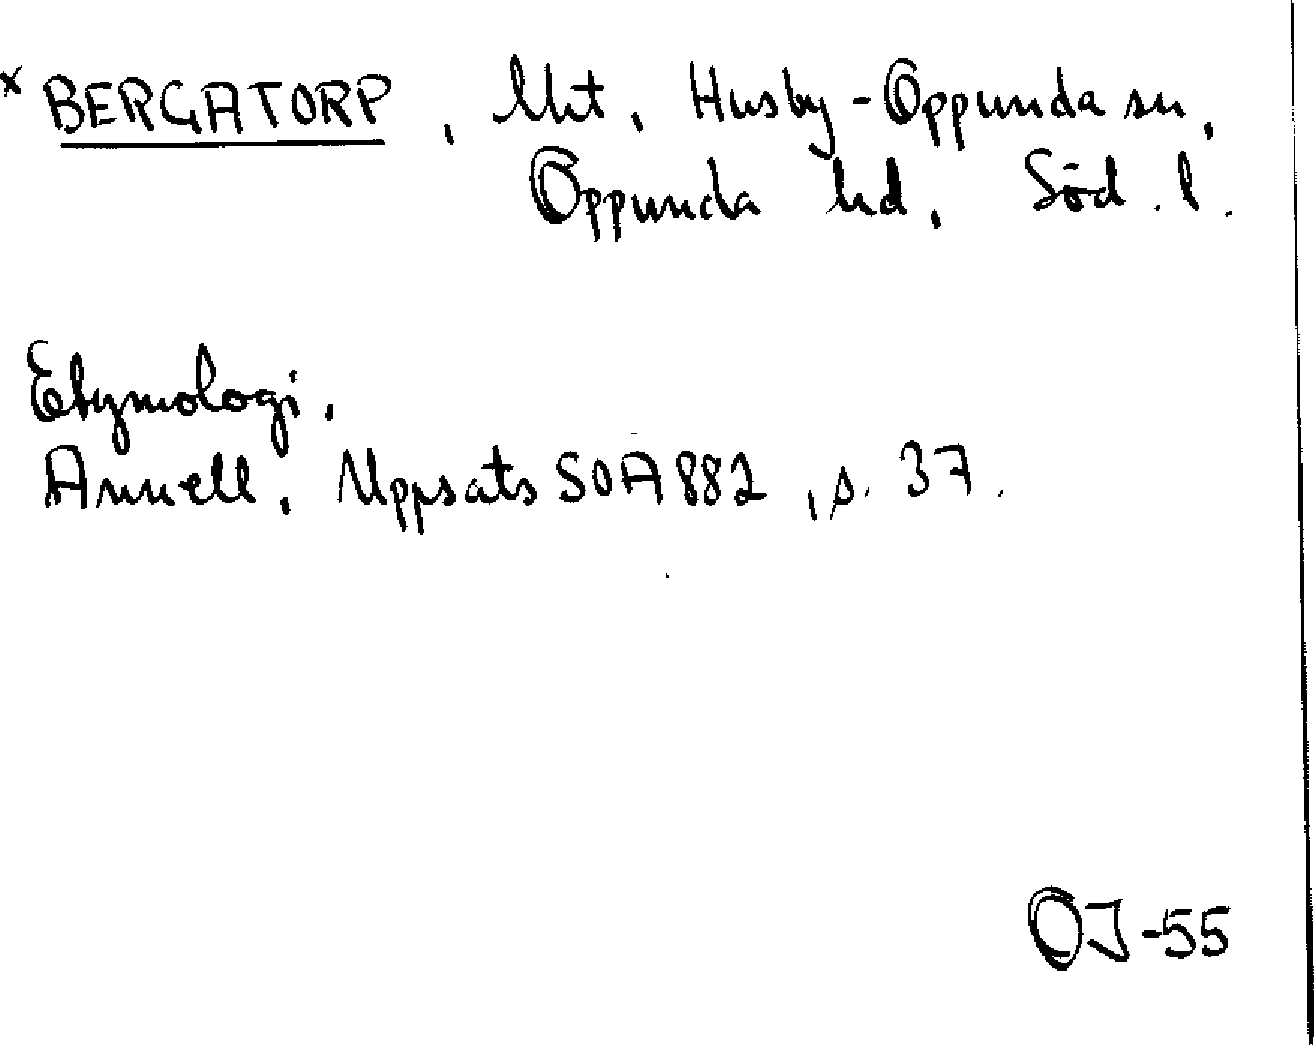 x BERGATORP, lht, Husby-Oppunda sn,
Oppunda hd, Söd. l.
Etymologi.
Annell, Uppsats SOA 882, s. 37.
OJ-55